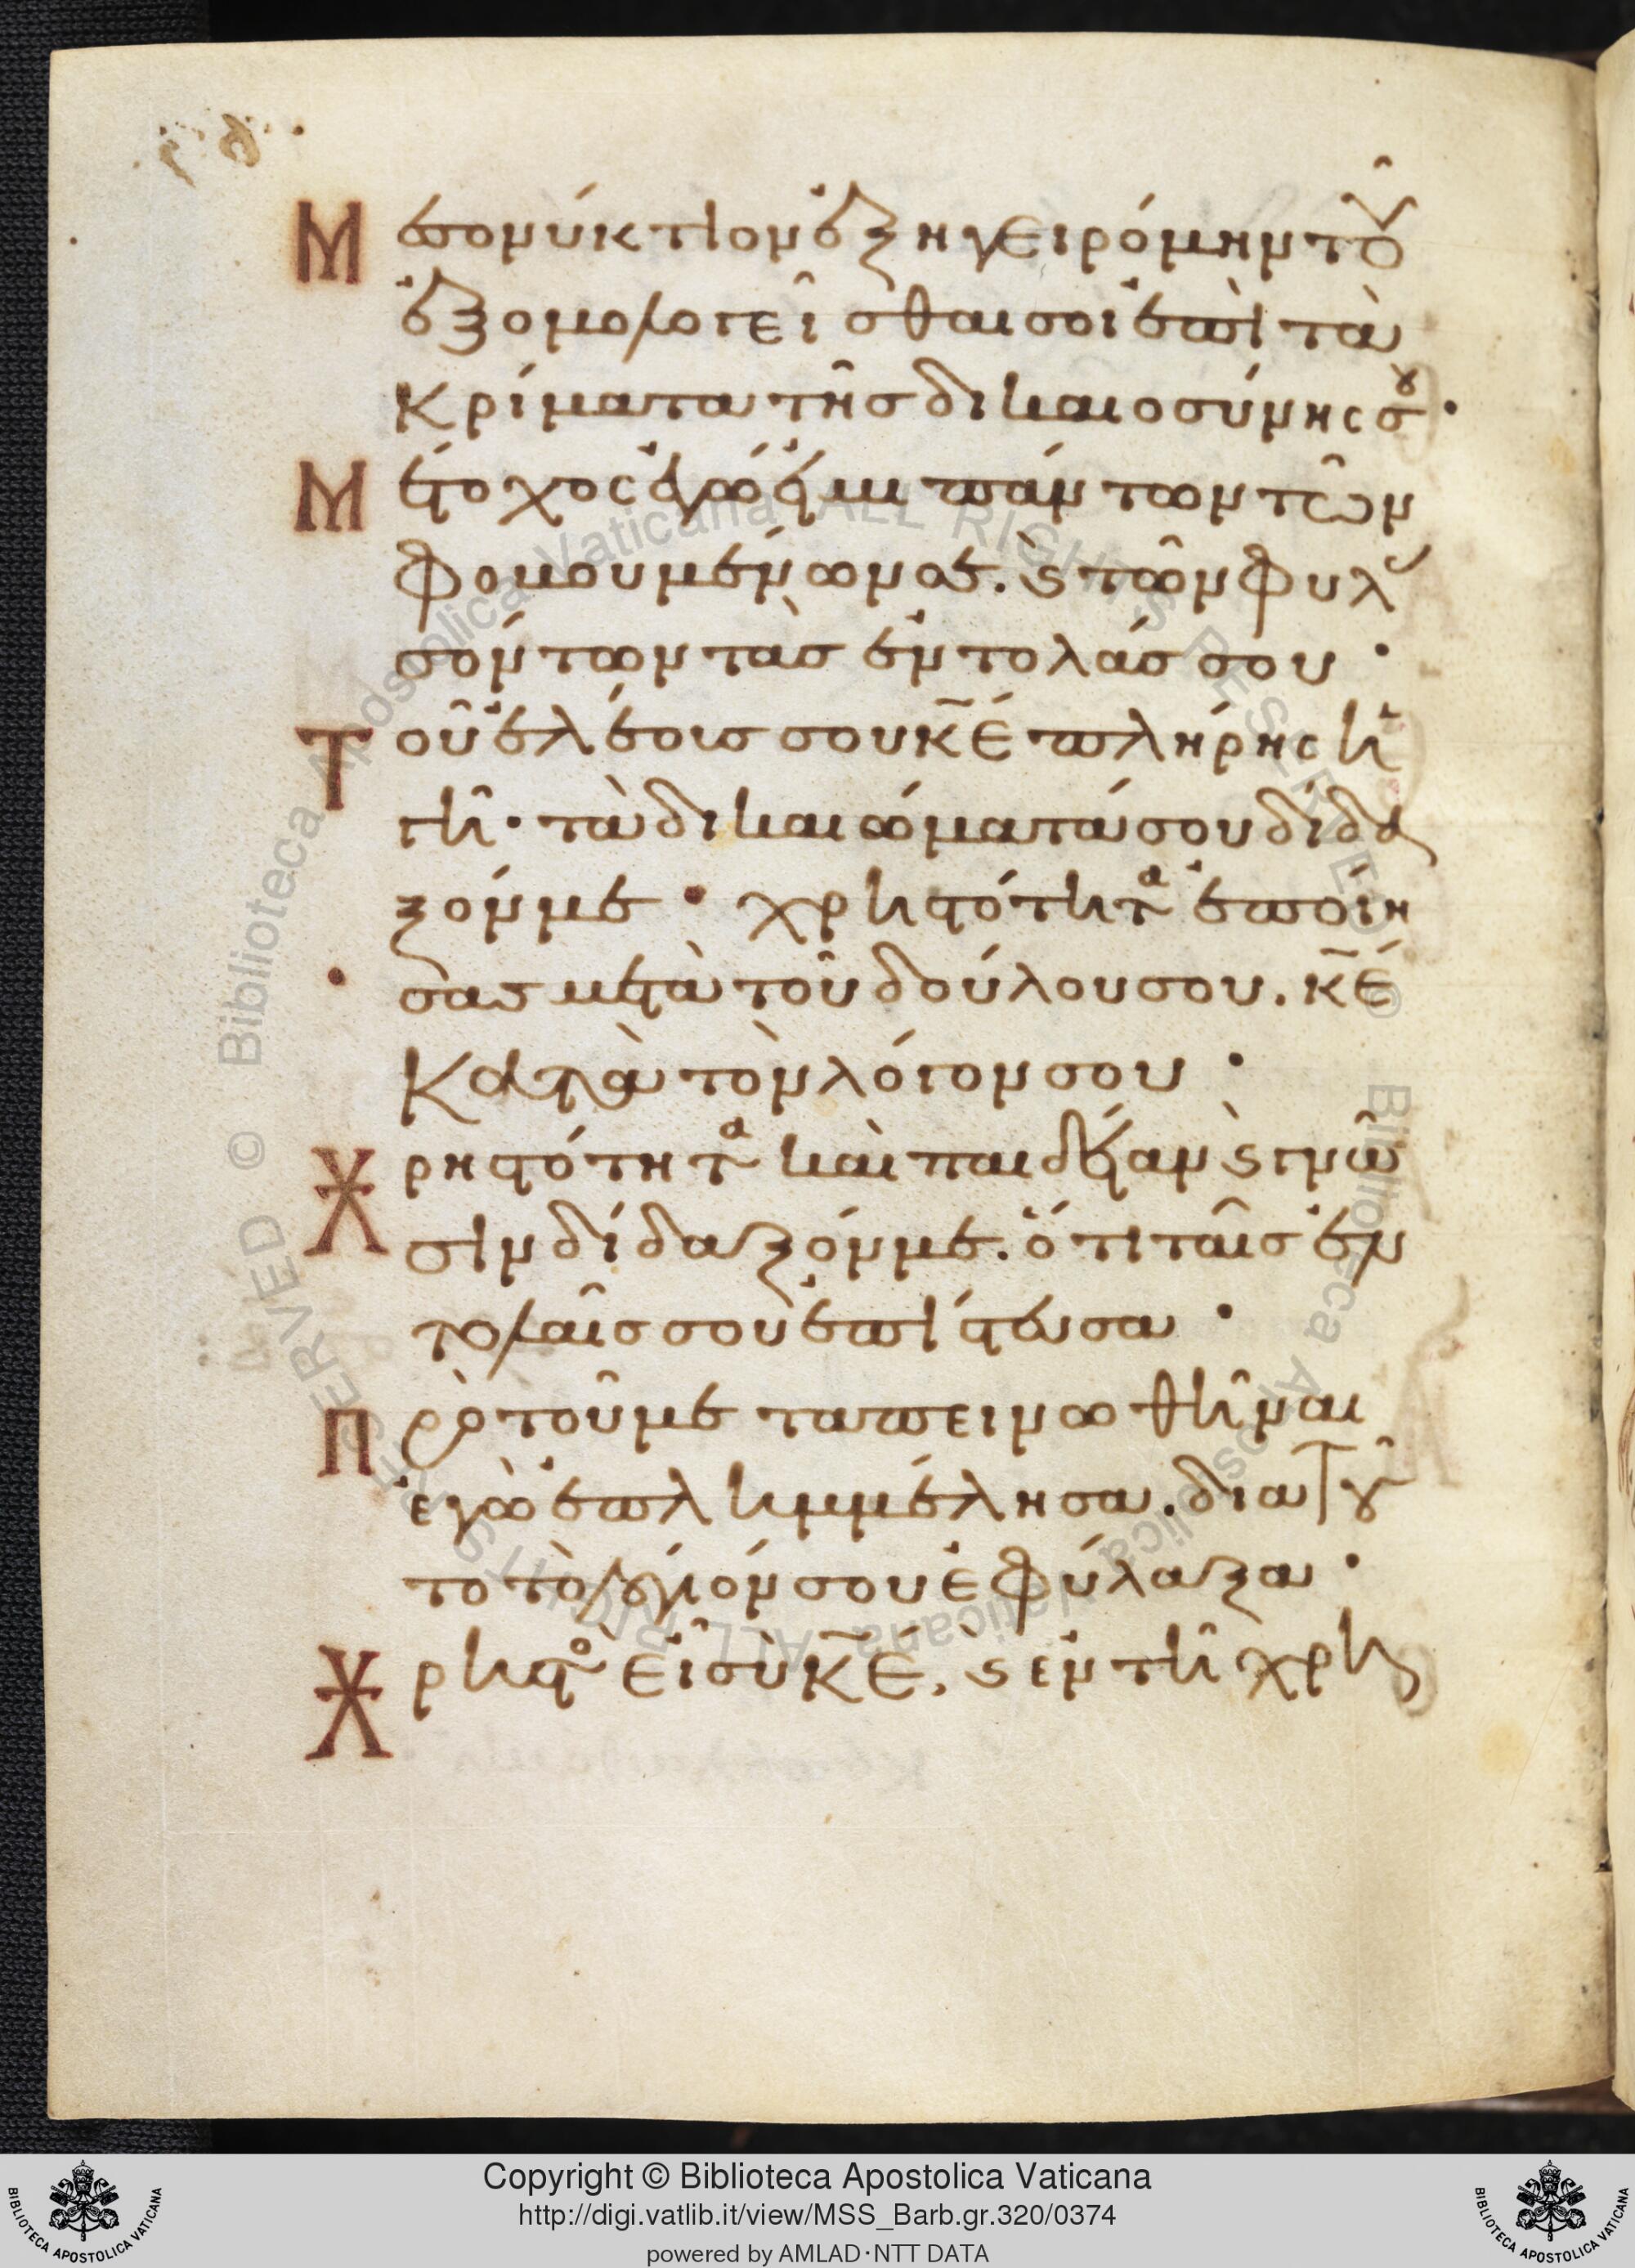 Μεσονύκτιον ἐξηγειρόμην τοῦ
ἐξομολογεῖσθαι σοι ἐπὶ τὰ
κρίματα τῆς δικαιοσύνης σου·
Μέτοχος ἐγώ εἰμι πάντων τῶν
φοβουμένων σε. ϛ τῶν φυλασ
σόντων τὰς ἐντολάς σου·
Τοῦ ἐλέους σου κε πλήρης ἡ
γῆ· τὰ δικαιώματά σου δίδα
ξόν με· χρηστότητα ἐποίη
σας μετὰ τοῦ δούλου σου. κε
κατὰ τὸν λόγον σου·
Χρηστότητα καὶ παιδείαν ϛ γνῶ
σιν δίδαξόν με. ὅτι ταῖς ἐν
τολαῖς σου ἐπίστευσα·
Πρὸ τοῦ με ταπεινωθῆναι
ἐγὼ ἐπλημμέλησα. διατοῦ
το τὸ λόγιόν σου ἐφύλαξα·
Χρηστὸς εἶ σὺ κε, ϛ ἐν τῆ χρησ
Copyright © Biblioteca Apostolica Vaticana
http://digi.vatlib.it/view/MSS_Barb.gr.320/0374
powered by AMLAD·NTT DATA